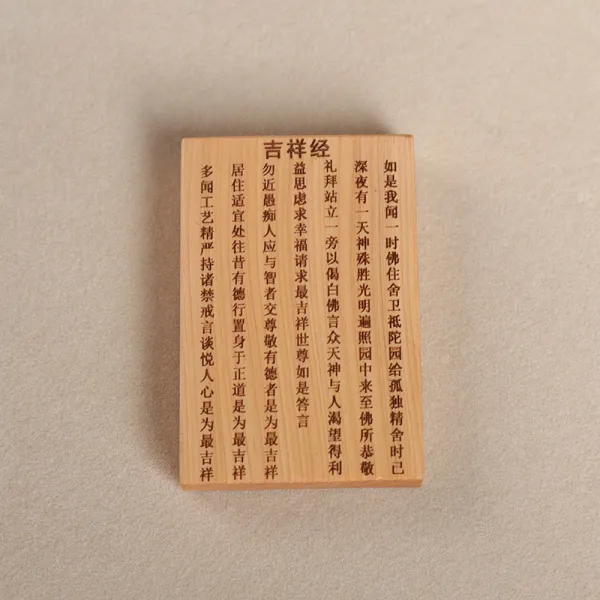 吉祥经
如是我闻一时佛住舍卫祇陀园给孤独精舍时己
深夜有一天神殊胜光明遍照园中来至佛所恭敬
礼拜站立一旁以偈白佛言众天神与人渴望得利
益思虑求幸福请求最吉祥世尊如是答言
勿近愚痴人应与智者交尊敬有德者是为最吉祥
居住适宜处往昔有德行置身于正道是为最吉祥
多闻工艺精严持诸禁戒言谈悦人心是为最吉祥